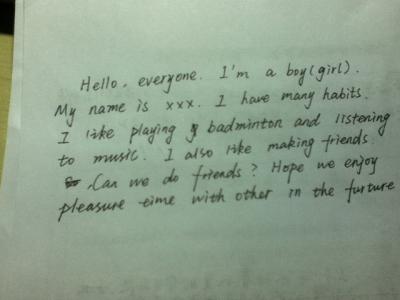 Hello, everyone. I'm a boy(girl).
My name is xxx. I have many habits.
I like playing badminton and listening
to music. I also like making friends.
Can we do friends? Hope we enjoy
pleasure time with other in the furture